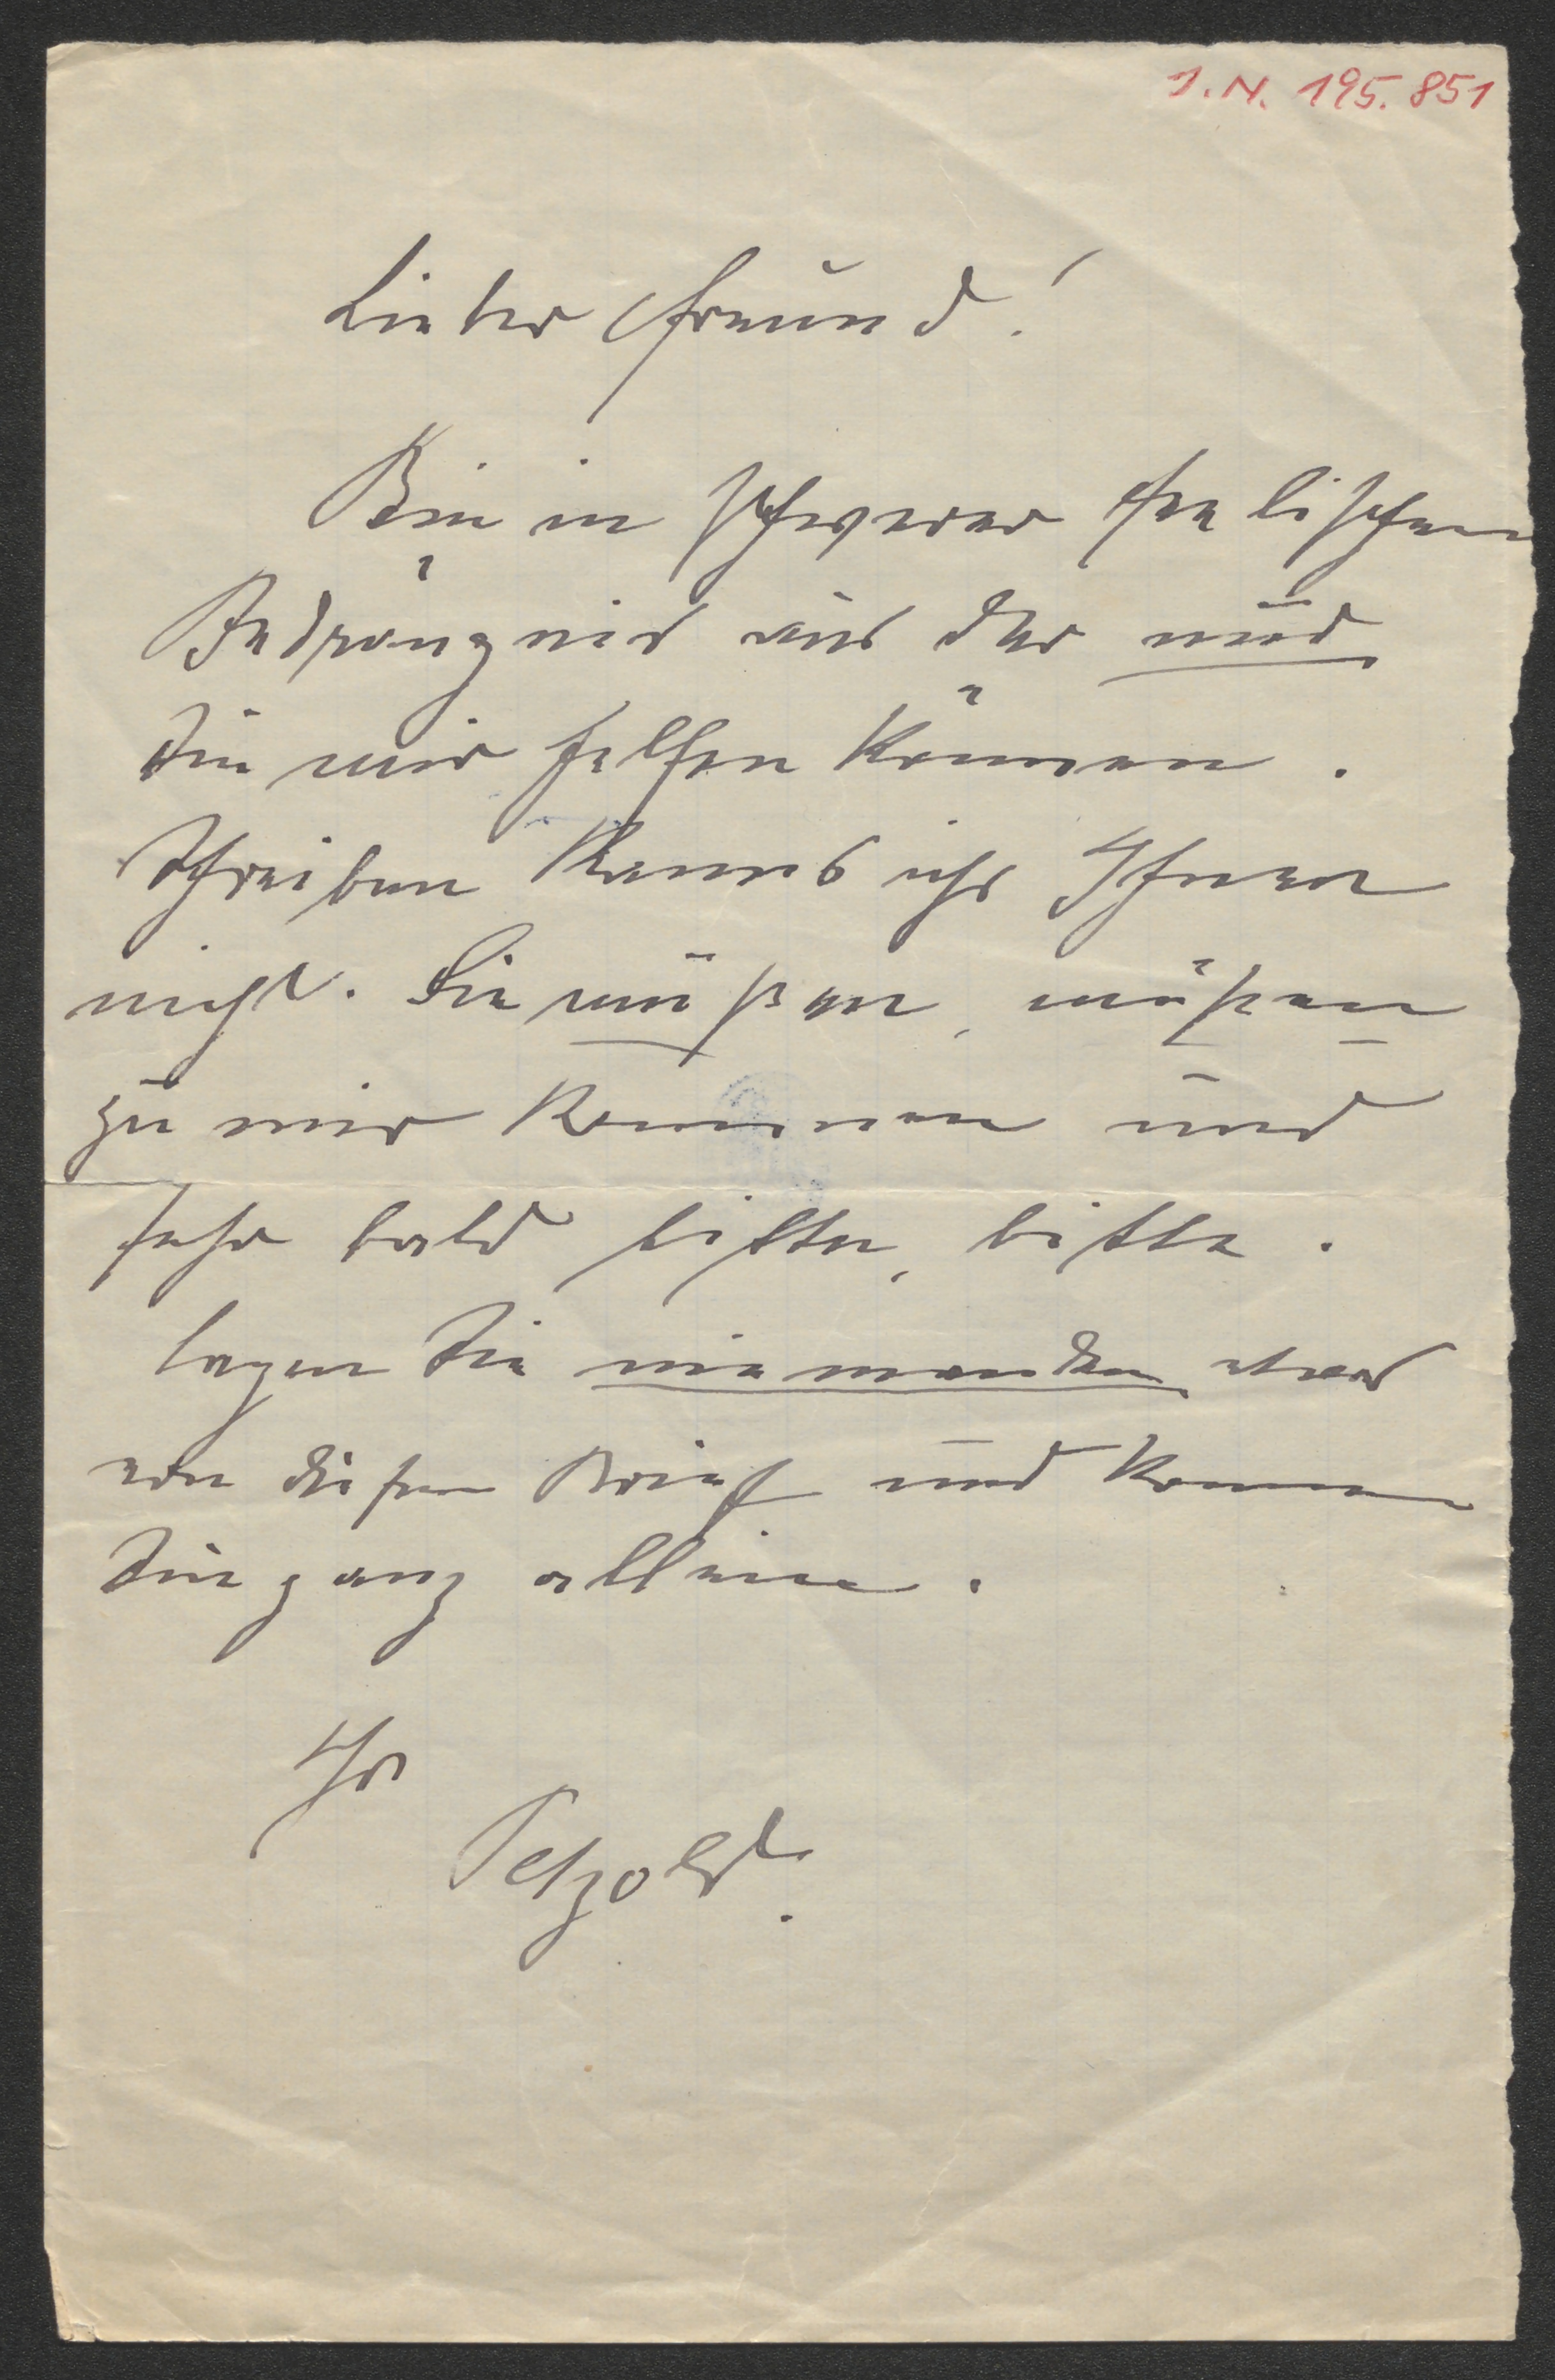 I.N. 195.851
Lieber Freund!
Bin in schwerer seelischen
Bedrängnis aus der nur
Sie mir helfen können.
Schreiben kanns ich Ihnen
nicht. Sie müßen, müßen
zu mir kommen und
sehr bald bitte, bitte.
Sagen Sie niemanden etwas
von diesen Brief und kommen
Sie ganz alleine.
Ihr
Petzold.